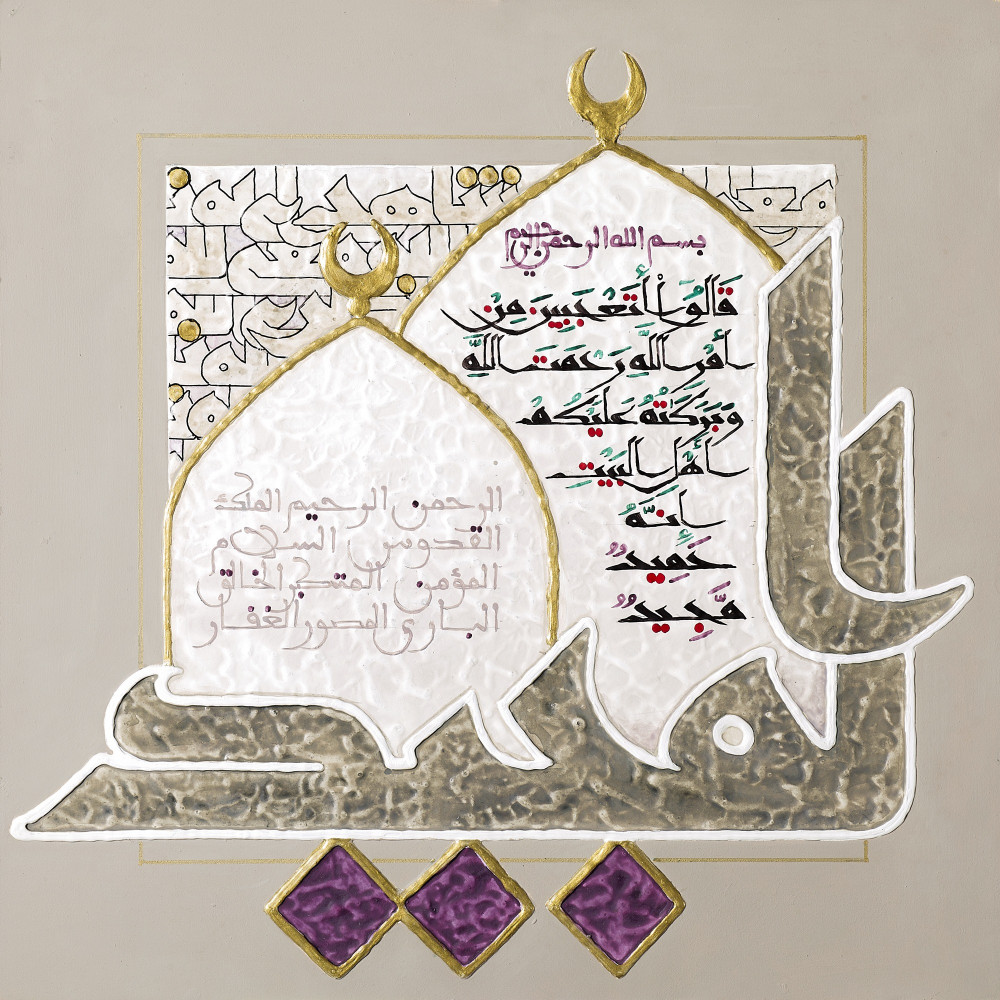 بسم الله الرحمن الرحيم
قَالُوٓا۟ أَتَعْجَبِينَ مِنْ
أَمْرِ اللَّهِ رَحْمَتُ اللَّهِ
وَبَرَكَٰتُهُ عَلَيْكُمْ
أَهْلَ الْبَيْتِ
إِنَّهُ
حَمِيدٌ
مَّجِيدٌ
الرحمن الرحيم الملك
القدوس السلام
المؤمن المتكبر الخالق
البارئ المصور الغفار